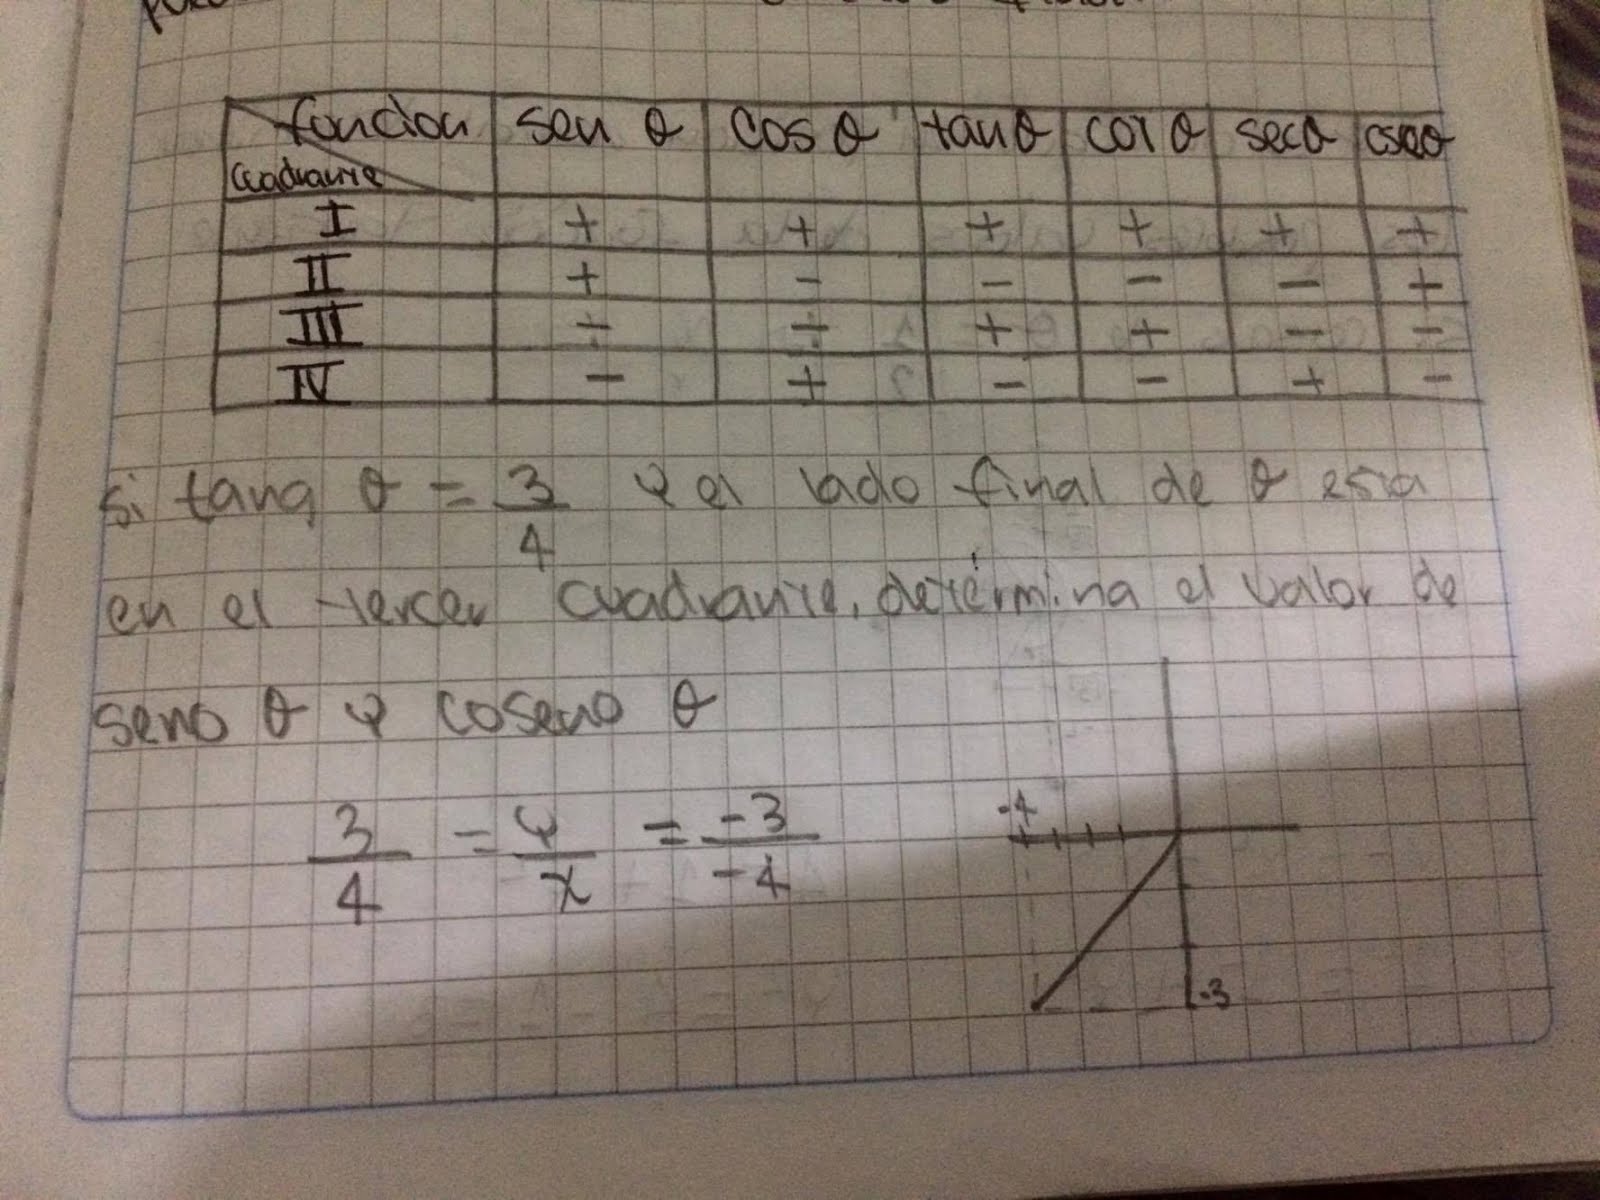 funcion sen θ cos θ tan θ cot θ sec θ csc θ
cuadrante
I + + + + + +
II + - - - - +
III ÷ ÷ + + - -
IV - + - - + -
si tang θ = 3/4 y el lado final de θ esta
en el tercer cuadrante, determina el valor de
seno θ y coseno θ
3/4 = y/x = -3/-4
-4
-3